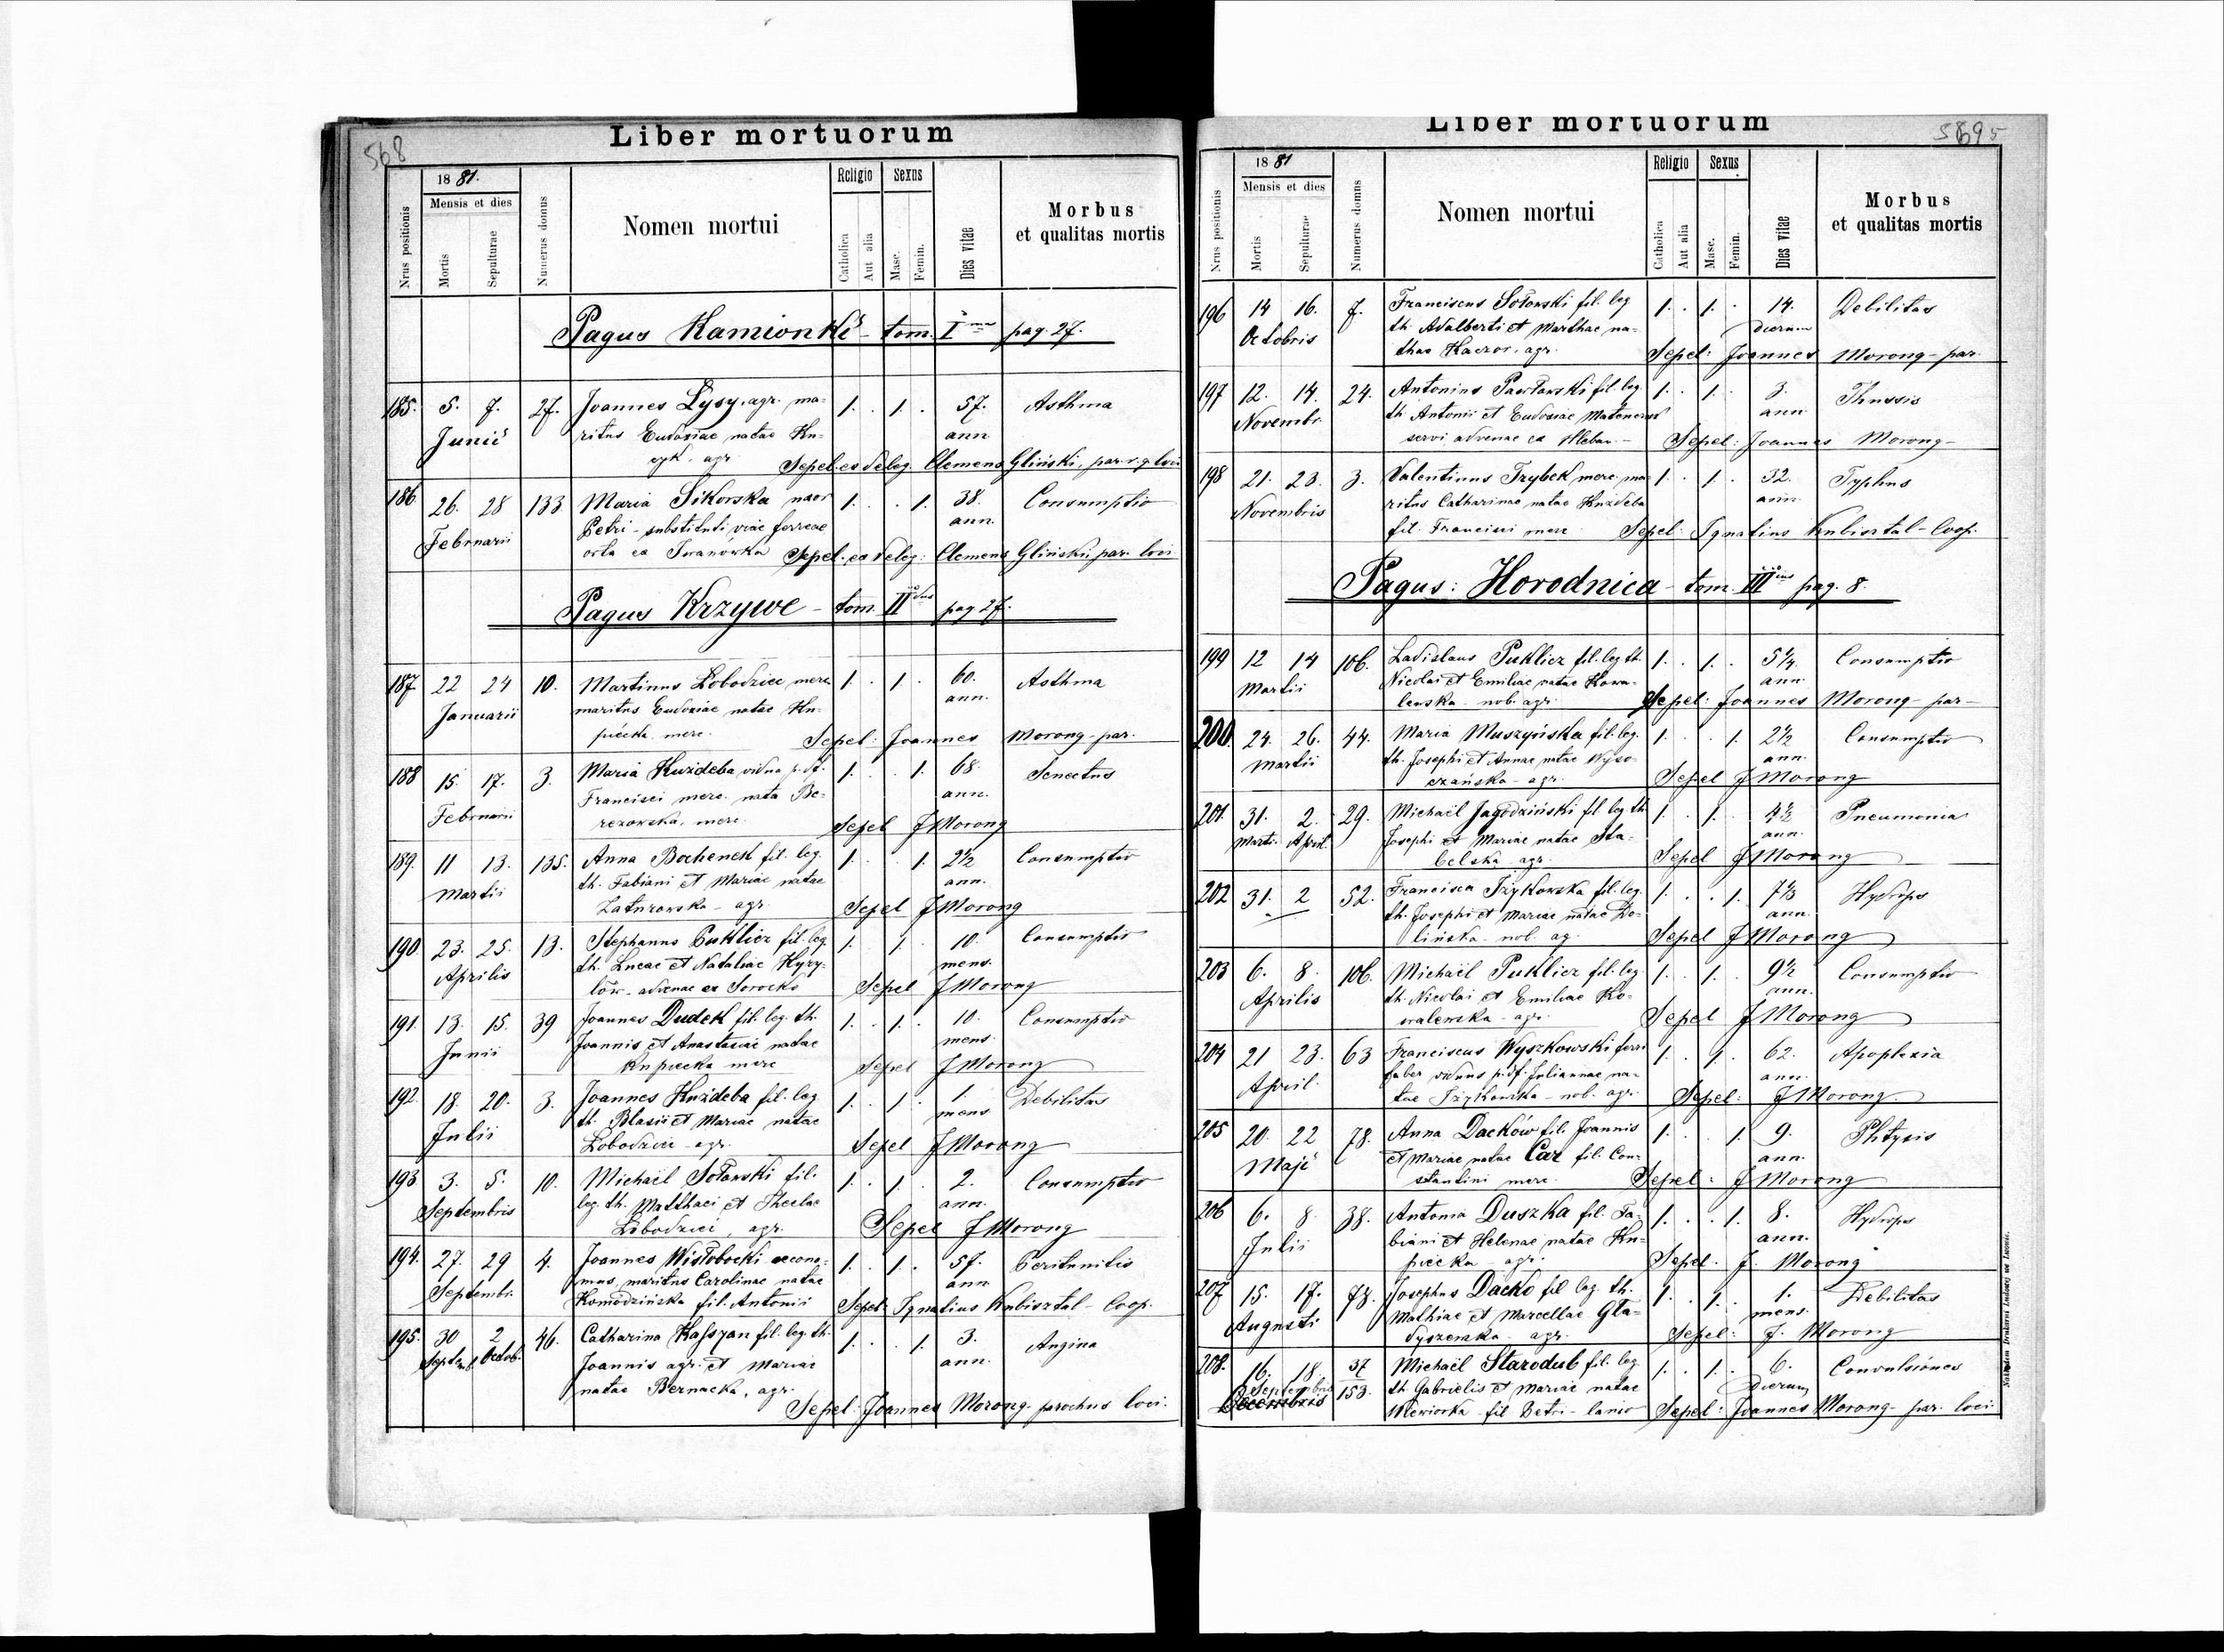 568
Liber mortuorum
Nrus positionis
1881.
Mensis et dies
Mortis
Sepulturae
Numerus domus
Nomen mortui
Religio
Catholica
Aut alia
Sexus
Masc.
Femin.
Dies vitae
Morbus
et qualitas mortis
Pagus Kamionki - tom. I pag. 27.
185. 5. 7. 27. Joannes Łysy, agr. ma- 1. . 1. . 57. Asthma
Junii ritus Eudoxiae natae Ku- ann
cyk. agr. Sepel. ex deleg. Clemens Gliński, par. r. g. loci
186. 26. 28 133 Maria Sikorska uxor 1. . . 1. 38. Consumptio
Februarii Petri - substituti viae ferreae ann.
orta ex Iwanówka Sepel. ex deleg: Clemens Gliński par. loci
Pagus Krzywe - tom. II pag. 27.
187. 22 24 10. Martinus Łobodzicz merc. 1. . 1. . 60. Asthma
Januarii maritus Eudoxiae natae Ku- ann.
piecka merc. Sepel: Joannes Morong - par.
188 15. 17. 3. Maria Kuździeba vidua p. df. 1. . . 1. 68. Senectus
Februarii Francisci merc. nata Be- ann.
rezowska, merc. Sepel JMorong
189. 11 13. 135. Anna Bochenek fil. leg. 1. . . 1. 2½ Consumptio
Martii th. Fabiani et Mariae natae ann.
Zaturowska - agr. Sepel JMorong
190. 23. 25. 13. Stephanus Puklicz fil. leg. 1. . 1. . 10. Consumptio
Aprilis th. Lucae et Nataliae Hyry- mens.
lów - advenae ex Sorocko Sepel JMorong
191. 13. 15. 39 Joannes Dudek fil. leg. th. 1. . 1. . 10. Consumptio
Junii Joannis et Anastasiae natae mens.
Kupiecka merc Sepel JMorong
192. 18. 20. 3. Joannes Kuździeba fil. leg. 1. . 1. . 1. Debilitas
Julii th. Blasii et Mariae natae mens
Łobodzicz - agr. Sepel JMorong
193 3. 5. 10. Michaël Sołowski fil. 1. . 1. . 2. Consumptio
Septembris leg. th. Matthaei et Theclae ann.
Łobodzicz, agr. Sepel JMorong
194. 27. 29 4. Joannes Wisłobocki oecono- 1. . 1. . 57. Peritonitis
Septembr. mus, maritus Carolinae natae ann
Komodzińska fil. Antonii Sepel: Ignatius Kubisztal - Coop.
195. 30 2 46. Catharina Kassyan fil. leg. th. 1. . . 1. 3. Angina
Septemb. Octob. Joannis agr. et Mariae ann.
natae Bernacka, agr.
Sepel: Joannes Morong - parochus loci.
Liber mortuorum
Nrus positionis
1881
Mensis et dies
Mortis
Sepulturae
Numerus domus
Nomen mortui
Religio
Catholica
Aut alia
Sexus
Masc.
Femin.
Dies vitae
Morbus
et qualitas mortis
196 14 16. 7. Franciscus Sołowski fil. leg 1. . 1. . 14. Debilitas
Octobris th. Adalberti et Marthae na- dierum
thae Kaczor, agr. Sepel: Joannes Morong - par.
197 12. 14. 24. Antonius Pawłowski fil. leg. 1. . 1. . 3. Thussis
Novembr. th. Antonii et Eudoxiae ann
servi advenae ex Sepel: Joannes Morong -
198 21. 23. 3. Valentinus Trybek merc. ma- 1. . 1. . 32. Typhus
Novembris ritus Catharinae natae Kuździeba ann.
fil. Francisci merc Sepel: Ignatius Kubisztal - Coop.
Pagus: Horodnica - tom. III pag. 8.
199 12 14 106. Ladislaus Puklicz fil. leg. th. 1. . 1. . 5¼. Consumptio
Martii Nicolai et Emiliae natae Kowa- ann.
lewska - nob. agr. Sepel: Joannes Morong - par -
200. 24. 26. 44. Maria Muszyńska fil. leg. 1. . . 1. 2½ Consumptio
Martii th. Josephi et Annae natae Wyso- ann.
czańska - agr. Sepel JMorong
201. 31. 2. 29. Michaël Jagodziński fil. leg. th 1. . 1. . 4½ Pneumonia
Marti. April. Josephi et Mariae natae Sta- ann.
belska - agr. Sepel JMorong
202 31. 2 52. Francisca Iżykowska fil. leg. 1. . . 1. 7⅓ Hydrops
th. Josephi et Mariae natae Do- ann.
lińska - nob. ag. Sepel JMorong
203 6. 8. 106. Michaël Puklicz fil. leg. 1. . 1. . 9½ Consumptio
Aprilis th. Nicolai et Emiliae Ko- ann.
walewska - agr. Sepel JMorong
204 21 23. 63 Franciscus Wyszkowski ferri 1. . 1. . 62. Apoplexia
April. faber viduus p. df. Juliannae na- ann.
tae Iżykowska - nob. agr. Sepel: JMorong.
205 20. 22 78. Anna Daćków fil. Joannis 1. . . 1. 9. Phtysis
Maji et Mariae natae Car fil. Con- ann.
stantini merc. Sepel: JMorong
206 6. 8. 38. Antonia Duszka fil. Fa- 1. . . 1. 8. Hydrops
Julii biani et Helenae natae Ku- ann.
piecka - agr. Sepel. J. Morong
207 15. 17. 78. Josephus Daćko fil leg. th. 1. . 1. . 1. Debilitas
Augusti Mathiae et Marcellae Gła- mens.
dyszewska - agr. Sepel: J. Morong
208. 16. 18. 37 Michaël Starodub fil. leg. 1. . 1. . 6. Convulsiones
Septembris 153. th Gabrielis et Mariae natae dierum
Decembris Wiewiorka fil. Petri - lanio Sepel: Joannes Morong - par. loci
Nakładem drukarni Ludowej we Lwowie.